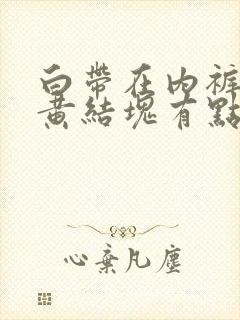 白帶在內褲
黃結塊有點
心棄凡塵